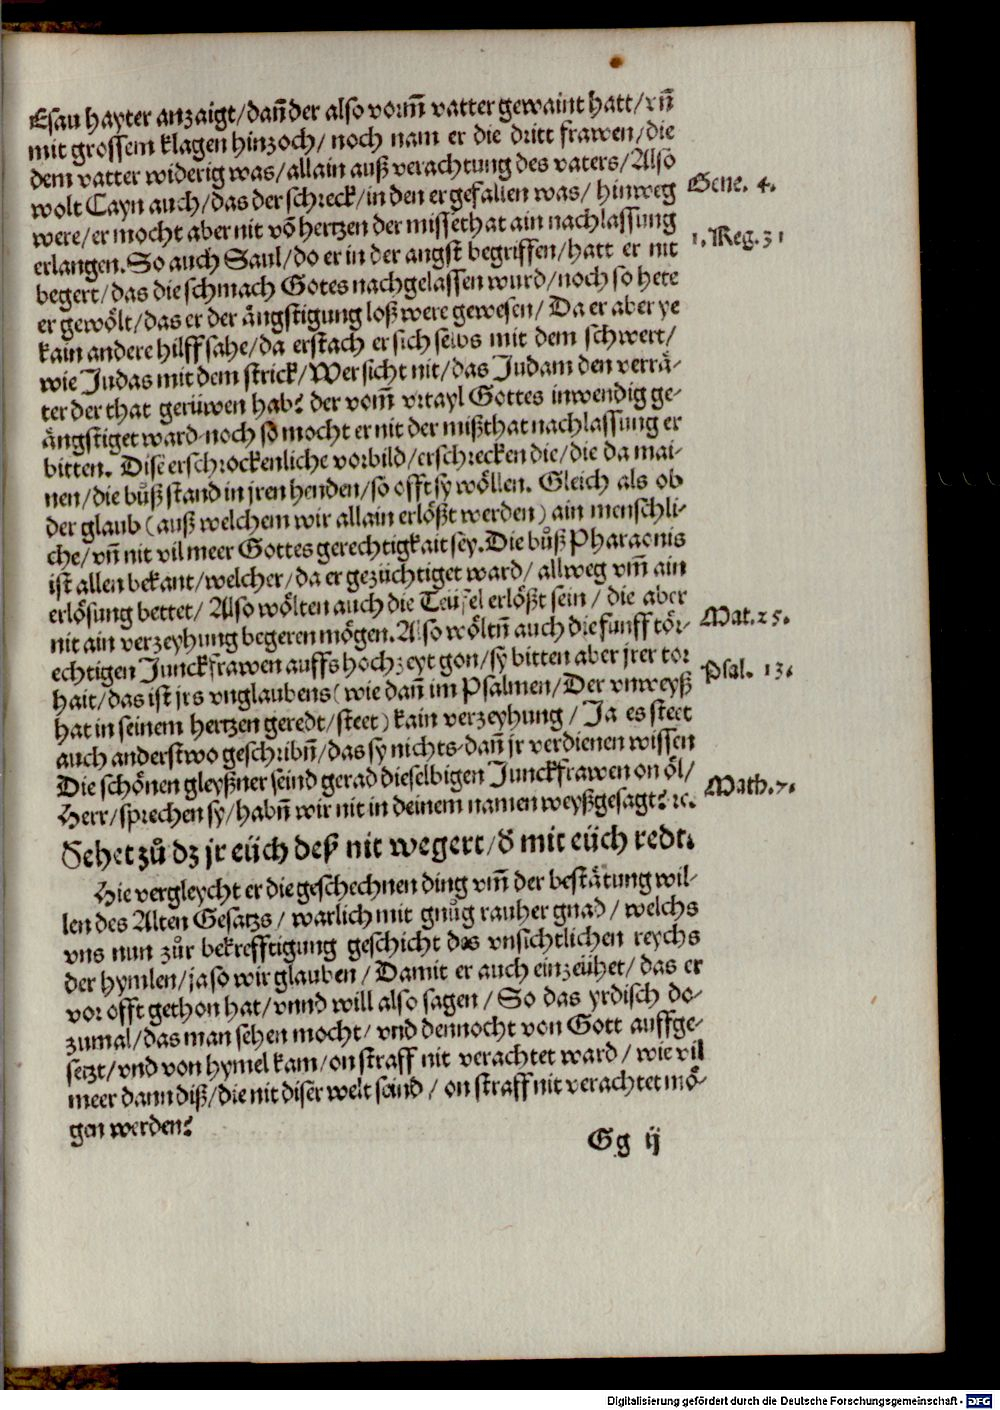 Esau hayter anzaigt/dañ der also vorm̃ vatter gewaint hatt/vñ
mit grossem klagen hinzoch/ noch nam er die dritt frawen/die
dem vatter widerig was/allain auß verachtung des vaters/Also
wolt Cayn auch/das der schreck/in den er gefallen was/ hinweg
Gene. 4.
were/er mocht aber nit võ hertzen der missethat ain nachlassung
1. Reg. 31
erlangen. So auch Saul/do er in der angst begriffen/hatt er nit
begert/das die schmach Gotes nachgelassen wurd/noch so hete
er gewölt/das er der ängstigung loß were gewesen/ Da er aber ye
kain andere hilff sahe/da erstach er sich selbs mit dem schwert/
wie Judas mit dem strick/Wer sicht nit/das Judam den verrä-
ter der that gerüwen hab? der vom̃ vrtayl Gottes inwendig ge-
ängstiget ward noch so mocht er nit der mißthat nachlassung er
bitten. Dise erschrockenliche vorbild/erschrecken die/die da mai-
nen/die bůß stand in jren henden/so offt sy wöllen. Gleich als ob
der glaub (auß welchem wir allain erlößt werden) ain menschli-
che/vñ nit vil meer Gottes gerechtigkait sey. Die bůß Pharaonis
ist allen bekant/welcher/da er gezüchtiget ward/ allweg vm̃ ain
erlösung bettet/ Also wölten auch die Teüfel erlößt sein/ die aber
nit ain verzeyhung begeren mögen. Also wöltñ auch die funff tör-
Mat. 25.
echtigen Junckfrawen auffs hochzeyt gon/sy bitten aber jrer tor
hait/das ist jrs vnglaubens (wie dañ im Psalmen/Der vnweyß
Psal. 13.
hat in seinem hertzen geredt/steet) kain verzeyhung/ Ja es steet
auch anderstwo geschribñ/das sy nichts dañ jr verdienen wissen
Die schönen gleyßner seind gerad dieselbigen Junckfrawen on öl/
Herr/sprechen sy/habñ wir nit in deinem namen weyßgesagt? ꝛc.
Math. 7.
Sehet zů dz jr eüch deß nit wegert/ď mit eüch redt.
Hie vergleycht er die geschechnen ding vm̃ der bestätung wil-
len des Alten Gesatzs/ warlich mit gnůg rauher gnad/ welchs
vns nun zůr bekrefftigung geschicht des vnsichtlichen reychs
der hymlen/ja so wir glauben/ Damit er auch einzeühet/ das er
vor offt gethon hat/vnnd will also sagen/ So das yrdisch do-
zumal/das man sehen mocht/ vnd dennocht von Gott auffge-
setzt/vnd von hymel kam/on straff nit verachtet ward/ wie vil
meer dann diß/die nit diser welt seind/ on straff nit verachtet mö-
gen werden?
Gg ij
Digitalisierung gefördert durch die Deutsche Forschungsgemeinschaft - DFG